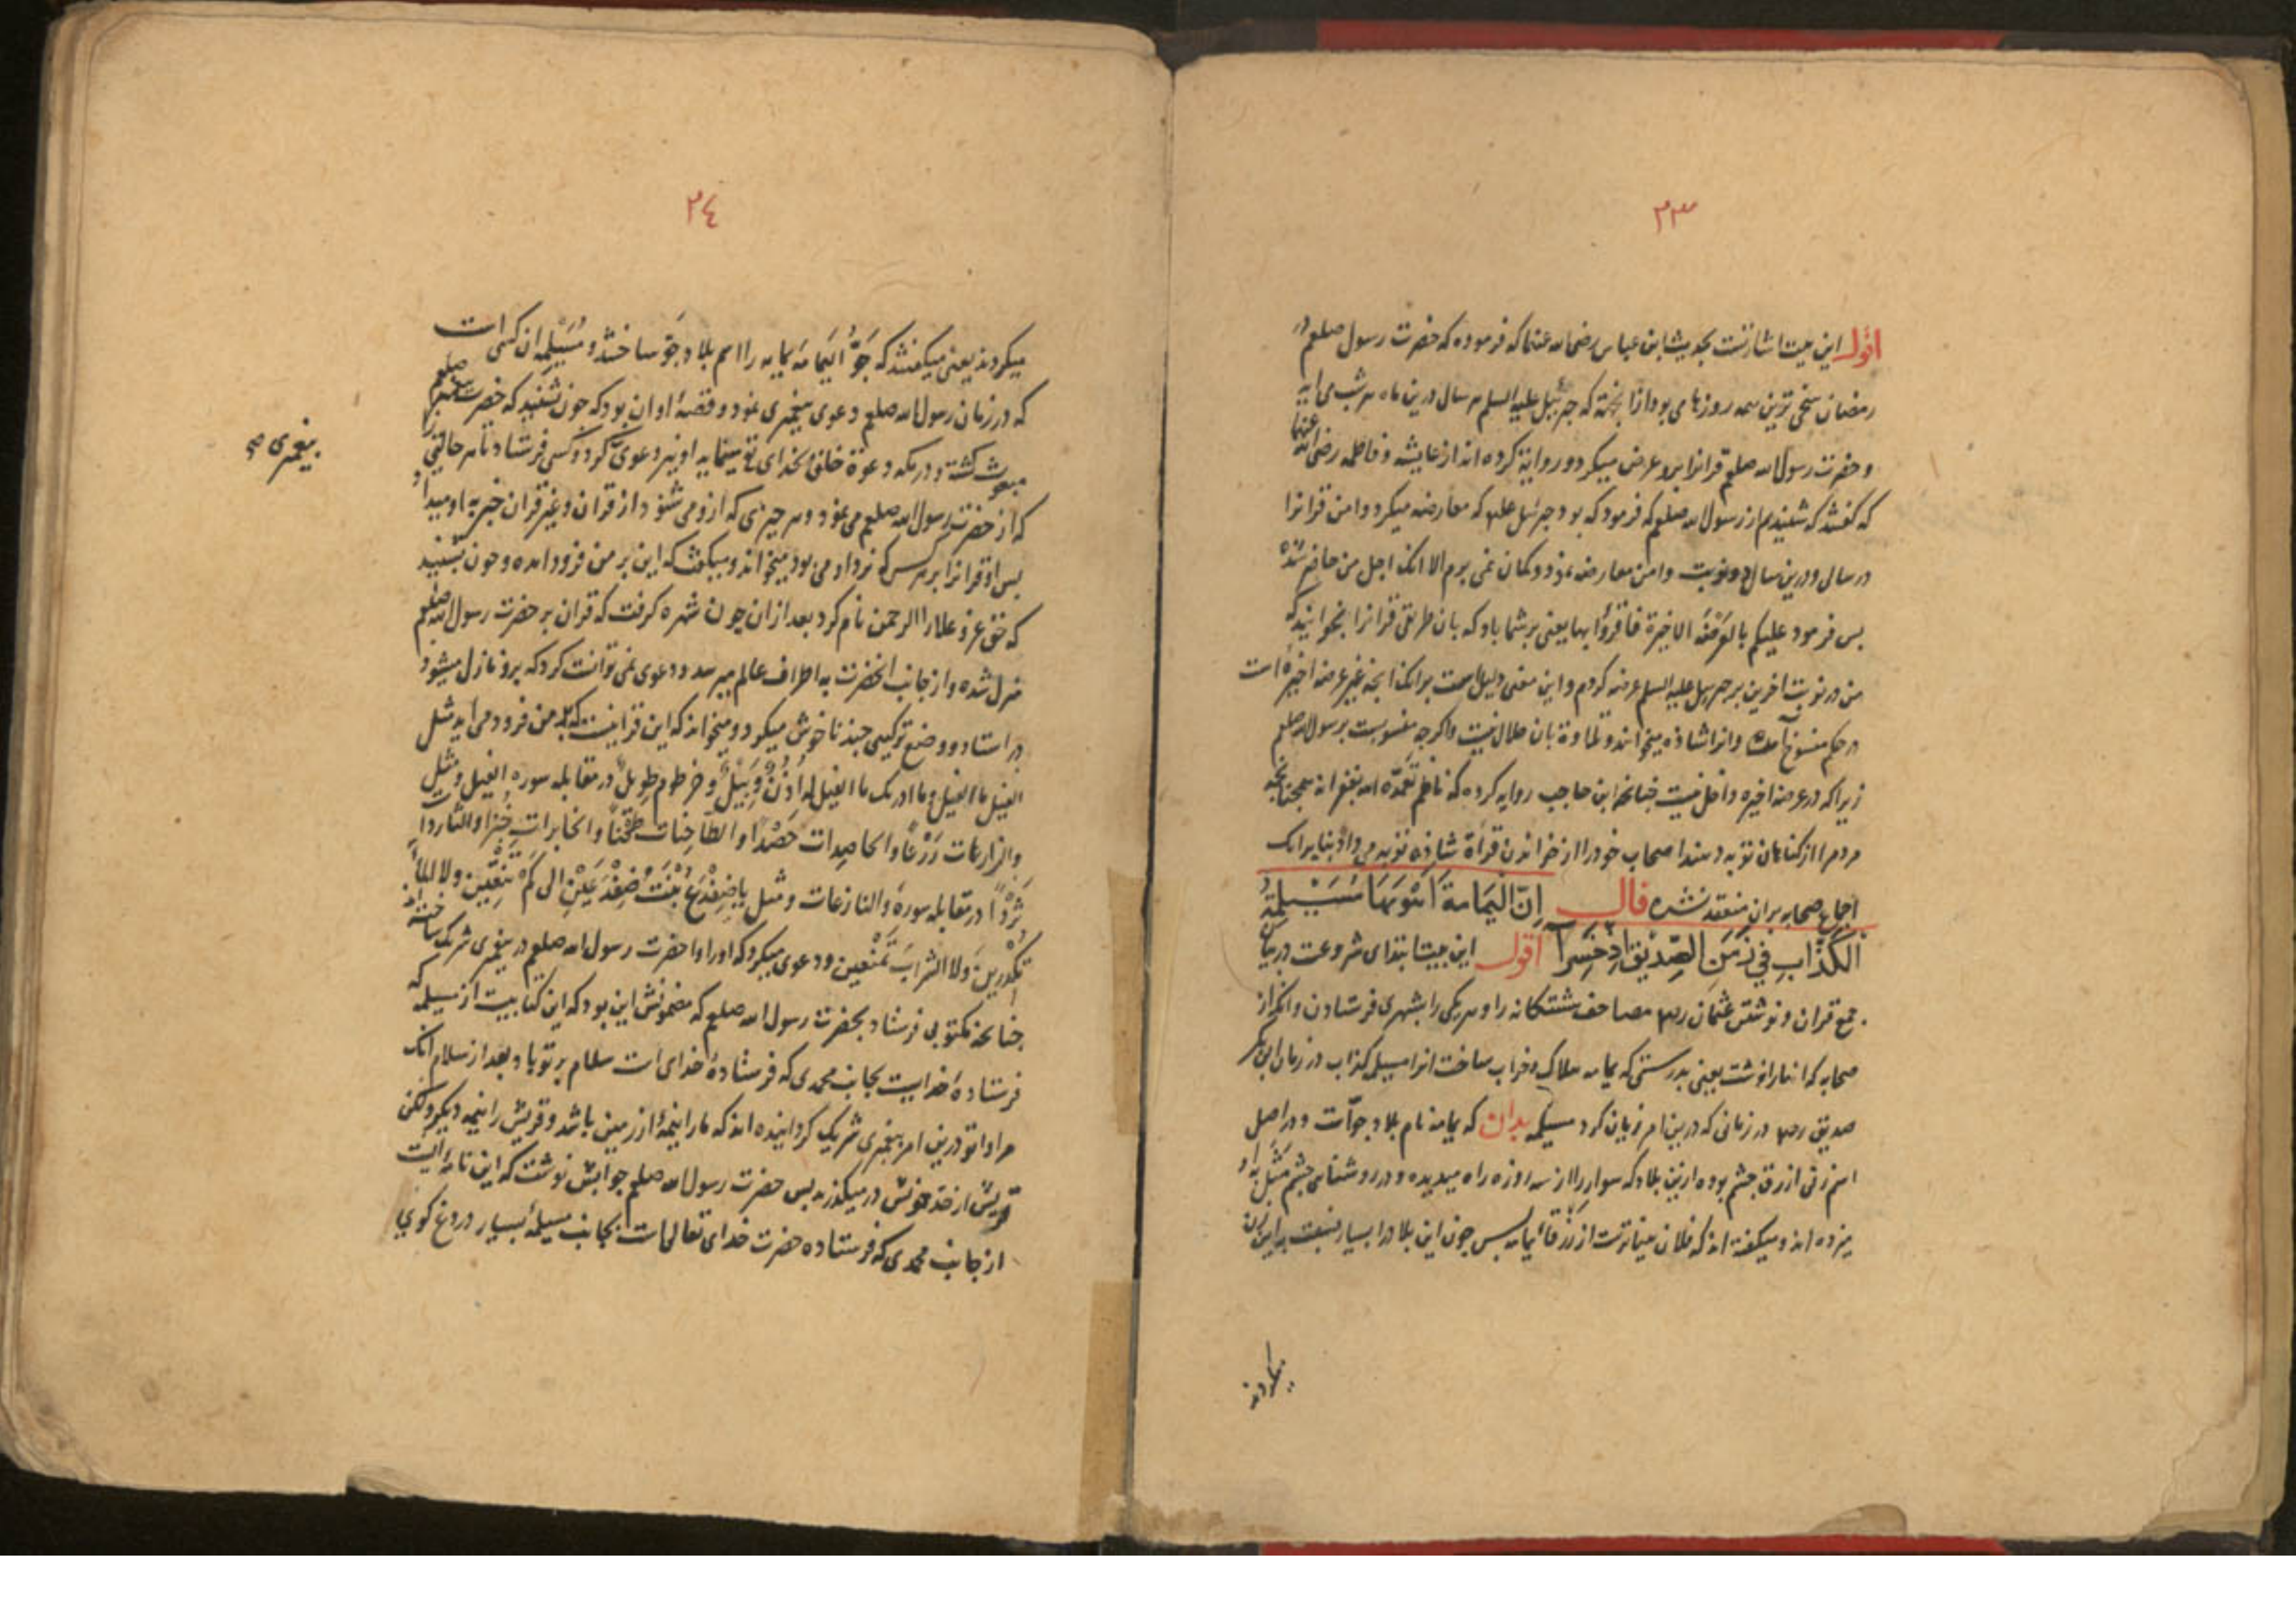 ٢٣
اقول این بیت اشارتست بحدیث ابن عباس رضی الله عنهما که فرموده که حضرت رسول صلعم در
رمضان سخی ترین همه روزها می بود از انجهة که جبرئیل علیه السلم هر سال درین ماه هر شب می آید
و حضرت رسول الله صلعم قرانرا برو عرض میکرد و روایة کرده اند از عایشه و فاطمه رضی الله عنهما
که گفتند که شنیدم از رسول الله صلعم که فرمود که بود جبرئیل علیه که معارضه میکرد و با من قرانرا
در سال و درین سال دو نوبت با من معارضه نمود و گمان نمی برم الا انک اجل من حاضر شده
بس فرمود علیکم بالعرضة الاخیرة فاقرؤا بها یعنی بر شما باد که بان طریق قرانرا بخوانید که
من در نوبت اخرین بر جبرییل علیه السلم عرضه کردم و این معنی دلیلست بر انک انچه غیر عرضه اخیره است
در حکم منسوخ است و انرا شاذه میخوانند و تلاوة بان حلال نیست و اگرچه منسوبست برسول صلعم
زیراکه در عرضه اخیره داخل نیست چنانچه ابن حاجب روایه کرده که ناظم تغمده الله بغفرانه همچنانچه
مردم را از کناهان توبه دهند اصحاب خود را از خواندن قراة شاذه توبه می داد بنابرانک
اجماع صحابه بران منعقد نشده قال إنّ الیَمامة اَهْوَیهَا مُسَیْلِمَةُ
الکَذّابِ فی زَمَنِ الصِّدّیقِ اِذ خَسِرَا اقول این بیت ابتدای شروعت در بیان
جمع قران و نوشتن عثمان رض مصاحف ششکانه را و هر یکی را بشهری فرستادن و انکه از
صحابه که انها را نوشت یعنی بدرستی که یمامه هلاک و خراب ساخت انرا مسیلمه کذاب در زمان ابی بکر
صدیق رض در زمانی که درین امر زیان کرد مسیلمه بدان که یمامه نام بلاد جوّ است و در اصل
اسم زنی ازرق چشم بوده ازین بلاد که سوار را از سه روزه راه میدیده و در روشنایی چشم مثل بدو
میزده اند و میکفته اند که فلان بیناترست از زرقاء یمامه بس چون این بلاد را بسیار نسبت باین زن
میکردند
٢٤
میکردند یعنی میکفتند که جَوُّ الیَمامَه یمامه را اسم بلاد جوّ ساختند و مُسَیْلِمه ان کسی است
که در زمان رسول الله صلعم دعوی پیغمبری نمود و قصهٔ او ان بود که چون شنید که حضرت پیغمبر صلعم
مبعوث کشته و در مکه دعوة خلق بخدای تع مینماید او نیز دعوی کرد و کسی فرستاد تا هر حالتی را
که از حضرت رسول الله صلعم می نمود و هر چیزی که ازو می شنود از قران و غیر قران خبر به او میداد
بس او قرانرا بر هر کس که نزد او می بود میخواند و میکفت که این بر من فرود امده و چون بشنید
که حق عز و علا را الرحمن نام کرد بعد از ان چون شهره کرفت که قران بر حضرت رسول الله صلعم
منزل شده و از جانب انحضرت به اطراف عالم میرسد دعوی نمی توانست کرد که برو نازل میشود
در استاد و وضع ترکیبی چند ناخوش میکرد و میخواند که این قرانیست که بمن فرود می اید مثل
الفیل ما الفیل و ما ادریک ما الفیل له اُذنٌ وَبیلٌ و خرطوم طویلٌ در مقابله سوره الفیل و مثل
والزارعات زَرْعًا والحاصدات حَصْدًا والطاحِنات طَحْنًا والخابزات خُبْزًا والثاردات
ثَرْدًا در مقابله سورهٔ والنازعات و مثل یا ضِفْدَعُ بِنْتَ ضِفْدَعَیْنِ الی کَمْ تَنِقّین ولا الماءَ
تُکَدِّرینَ ولا الشرابَ تَمْنَعین و دعوی میکرد که او را با حضرت رسول الله صلعم در پیغمبری شریک ساخته اند
چنانچه مکتوبی فرستاد بحضرت رسول الله صلعم که مضمونش این بود که این کتابیست از مسیلمه که
فرستادهٔ خدایست بجانب محمدی که فرستادهٔ خدای است سلام بر تو باد بعد از سلام انک
مرا با تو درین امر پیغمبری شریک کردانیده اند که ما را نیمهٔ از زمین باشد و قریش را نیمه دیگر ولکن
قریش از حد خویش در میکذرند بس حضرت رسول الله صلعم جوابش نوشت که این نامه ایست
از جانب محمدی که فرستاده حضرت خدای تعالی است بجانب مسیلمهٔ بسیار دروغ کوی
پیغمبری صح